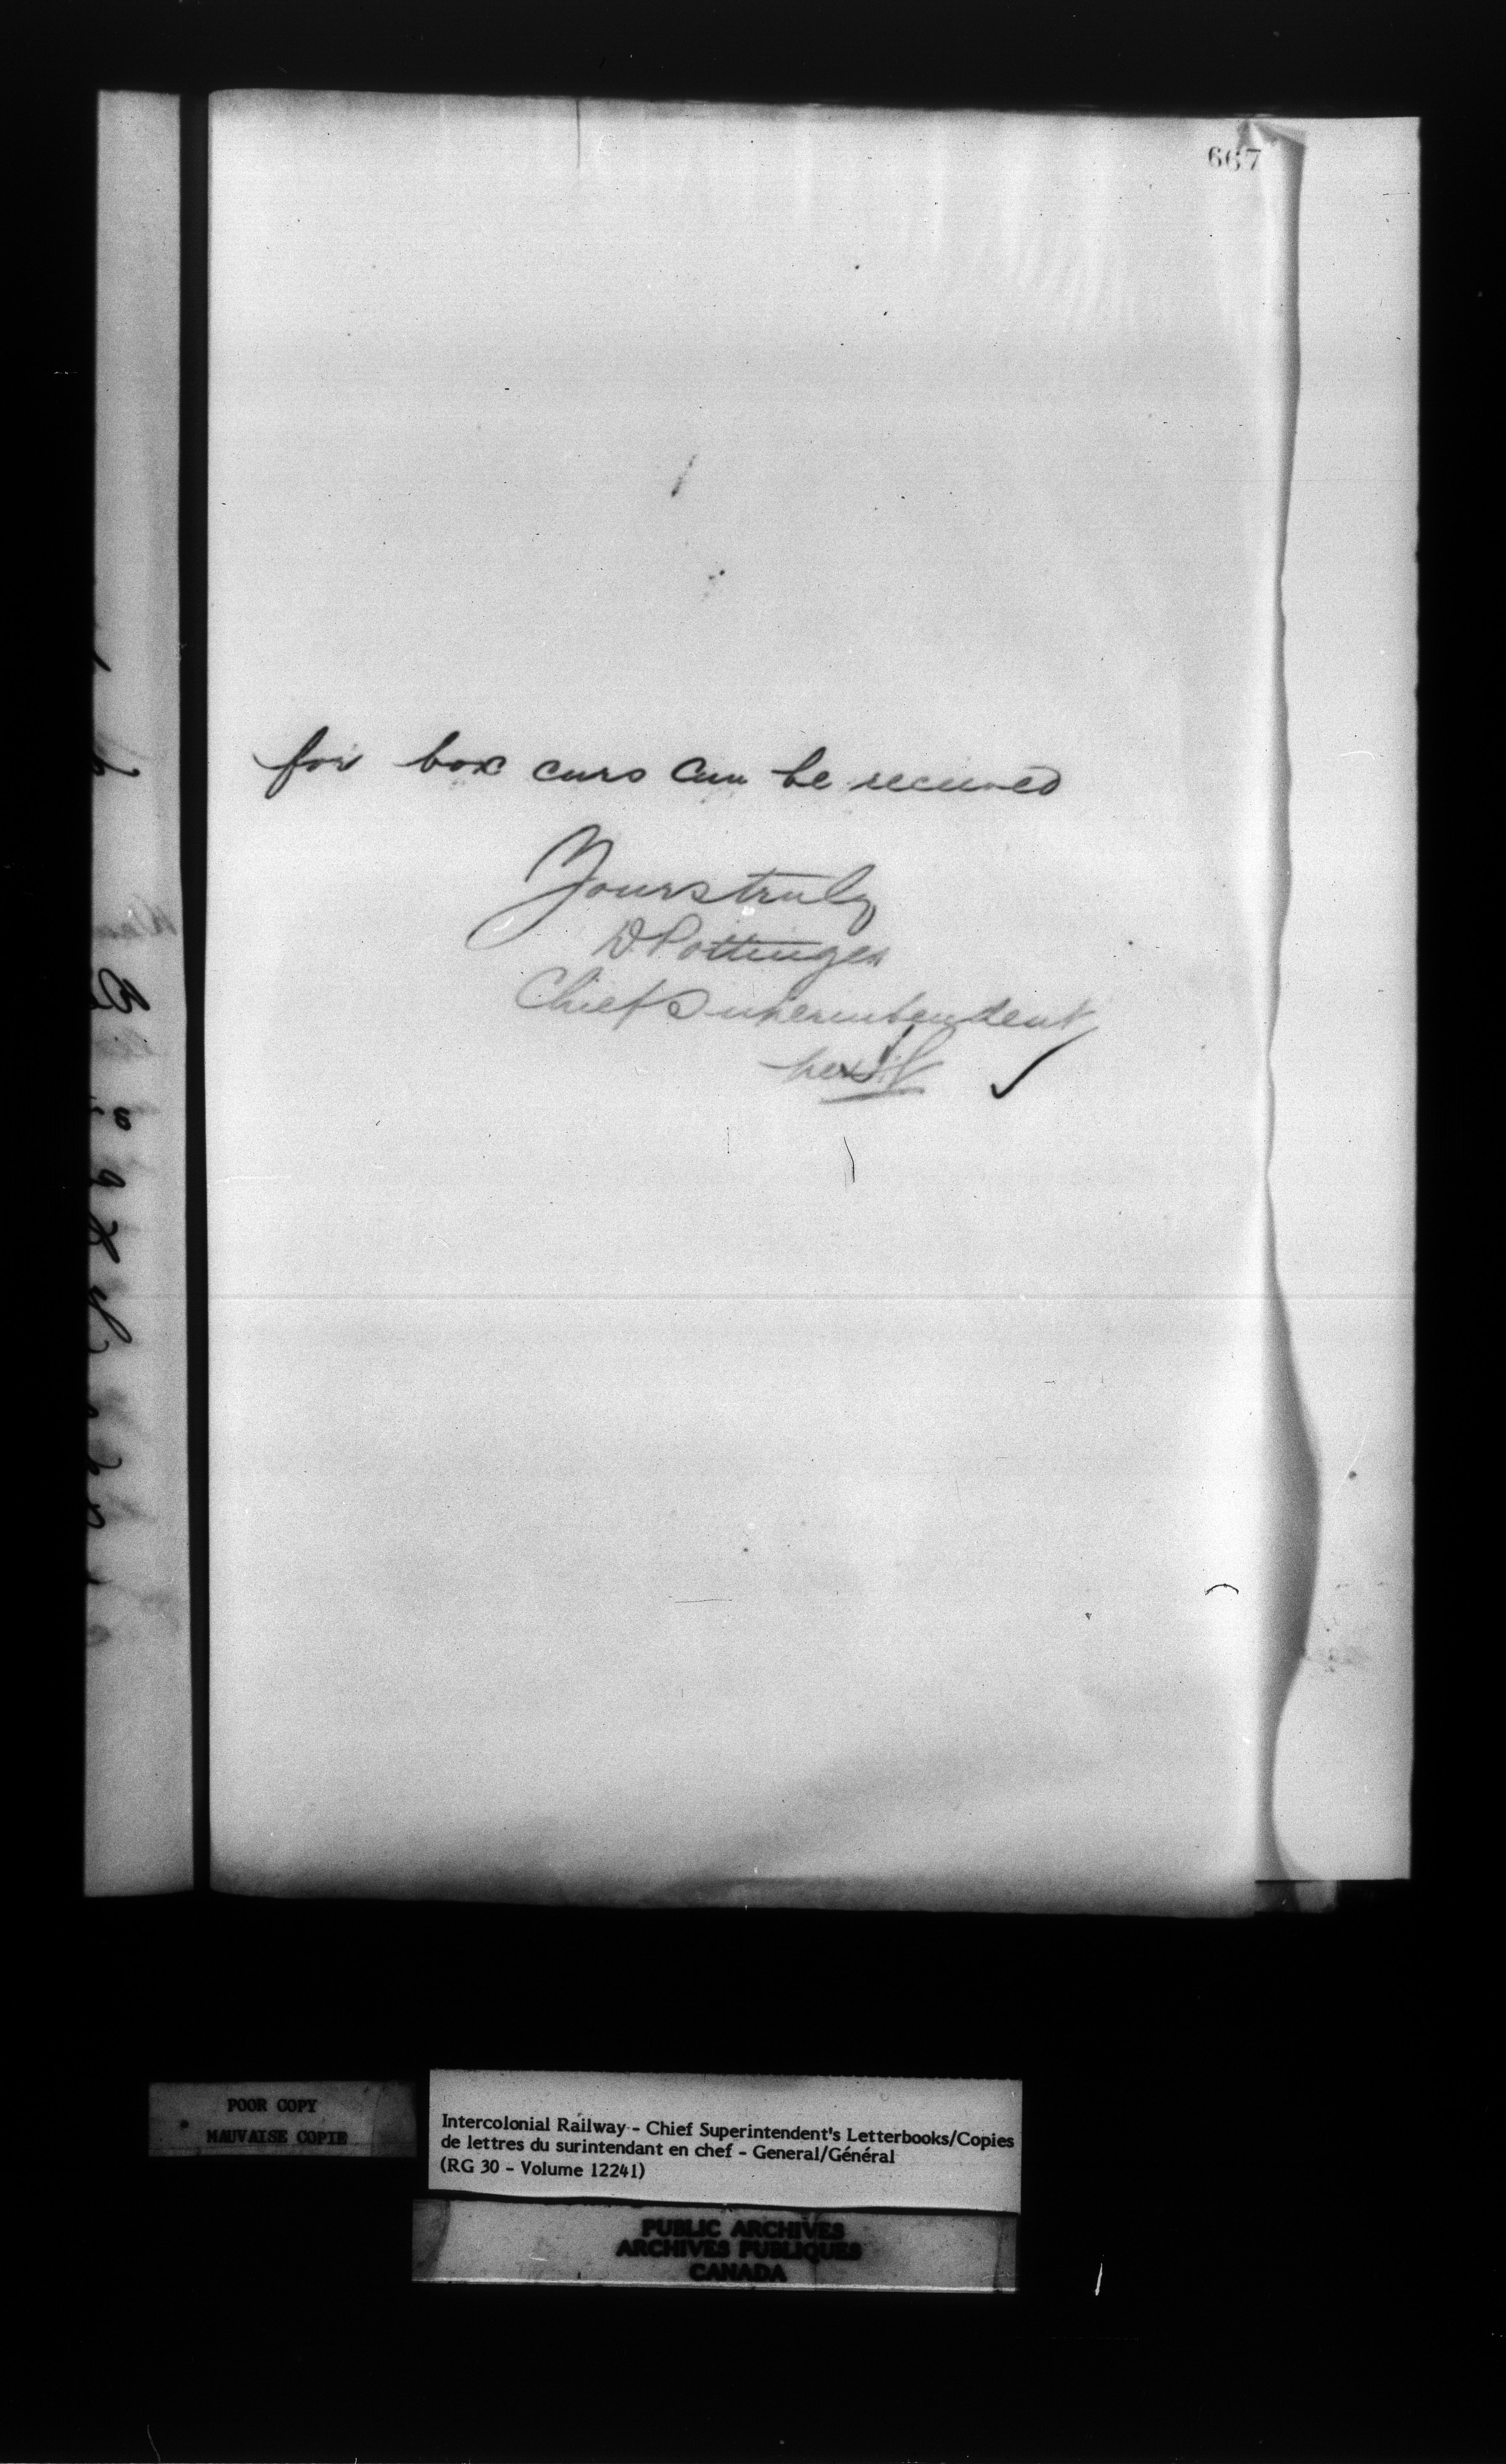 667
for box cars can be received
Yours truly
D Pottinger
Chief Superintendent
per
POOR COPY
MAUVAISE COPIE
Intercolonial Railway - Chief Superintendent's Letterbooks/Copies
de lettres du surintendant en chef - General/Général
(RG 30 - Volume 12241)
PUBLIC ARCHIVES
ARCHIVES PUBLIQUES
CANADA